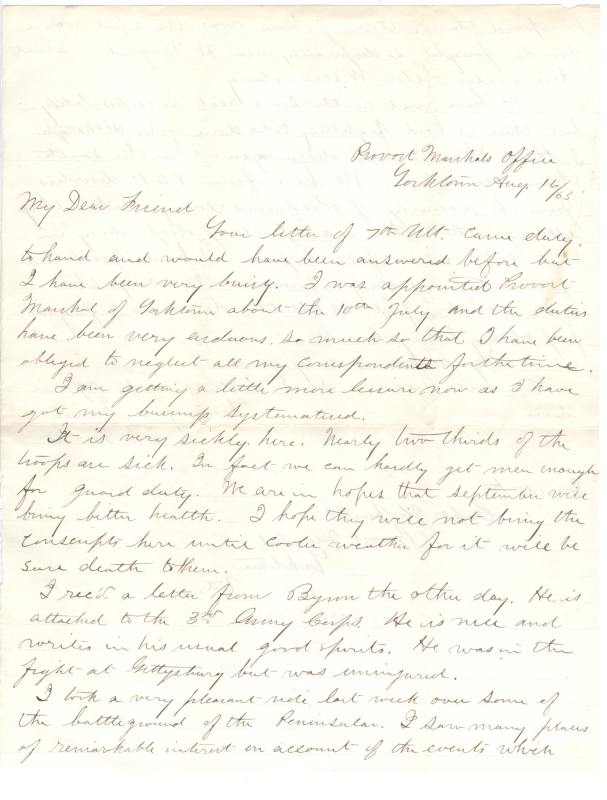 Provort Marshals Office
Yorktown Aug. 16/63
My Dear Friend
Your letter of 7th Ult. came duly
to hand and would have been answered before but
I have been very buisy. I was appointed Provort
Marshal of Yorktown about the 10th July and the duties
have been very arduous. so much so that I have been
obligid to neglect all my correspondents for the time.
I am getting a little more leisure now as I have
got my buisness systematised.
It is very sickly here. Nearly two thirds of the
troops are sick. In fact we can hardly get men enough
for guard duty. We are in hopes that september will
bring better health. I hope they will not bring the
conscripts here until cooler weather for it will be
sure death to them.
I recd a letter from Byron the other day. He is
attached to the 3rd Army Corps. He is well and
writes in his usual good spirits. He was in the
fight at Gettysburg but was uninjured.
I took a very pleasant ride last week over some of
the battleground of the Peninsular. I saw many places
of remarkable interest on account of the events which